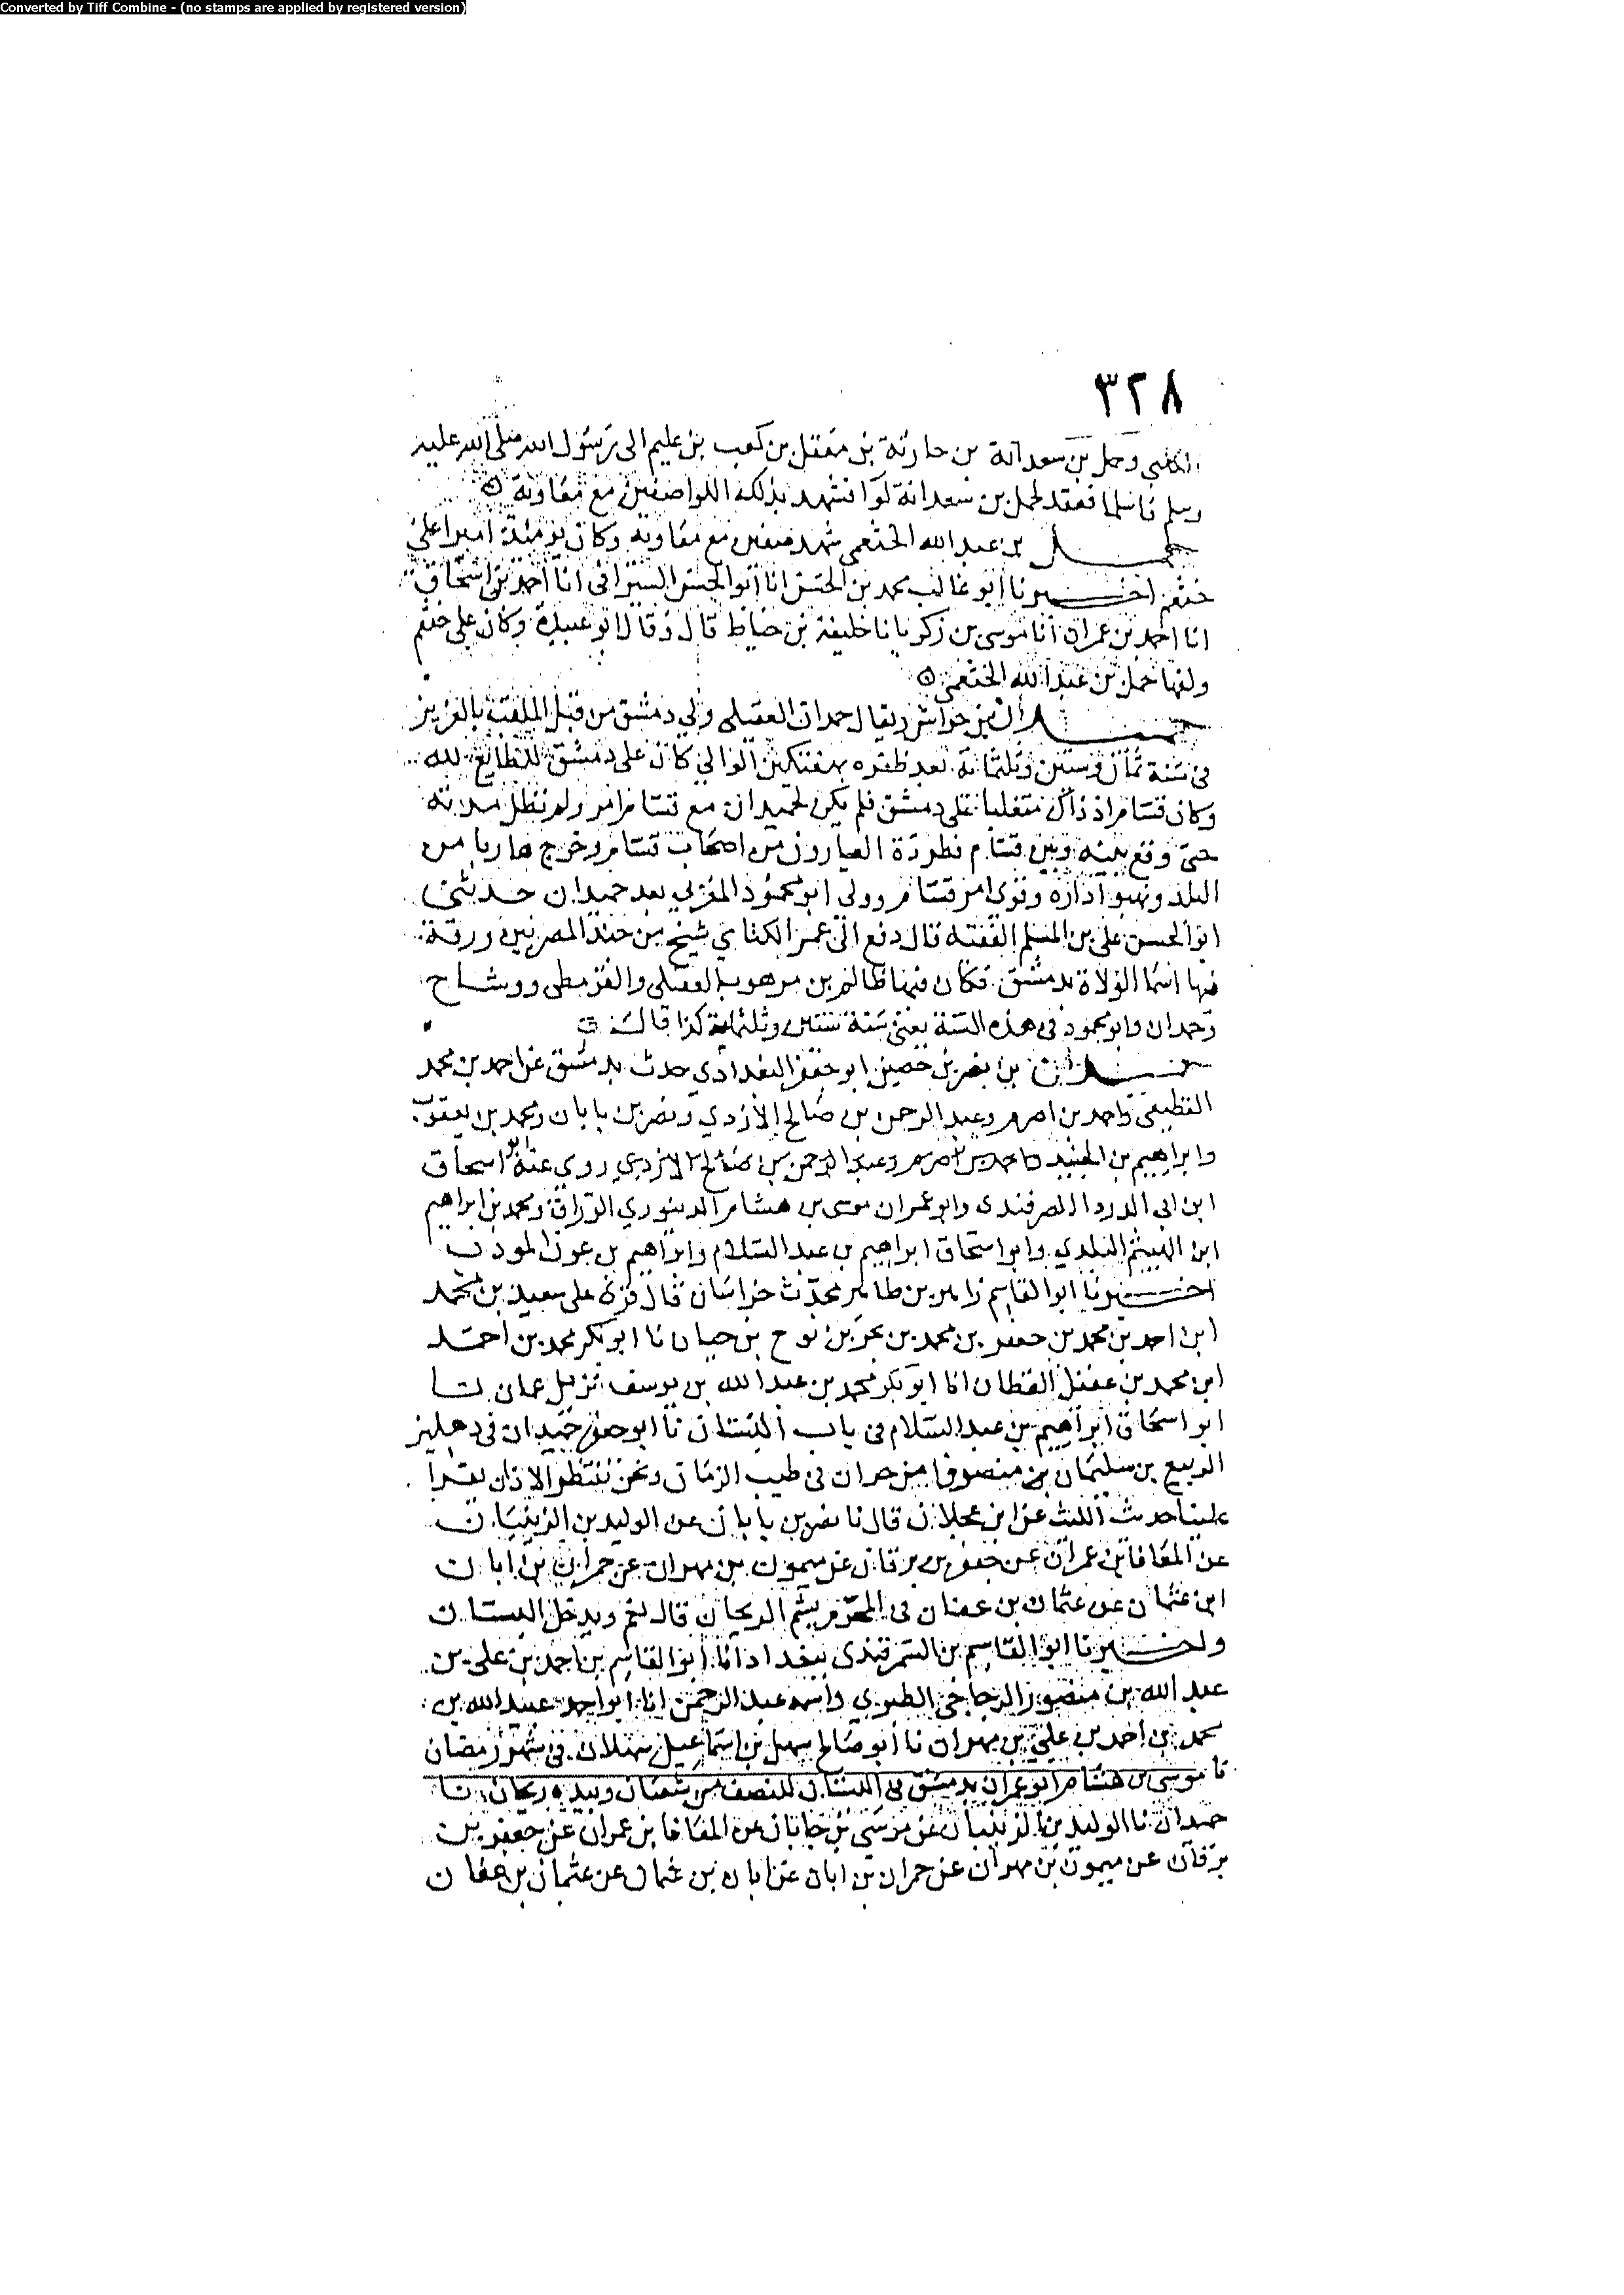 Converted by Tiff Combine - (no stamps are applied by registered version)
٣٢٨
الكلبي وحمل بن سعدانة بن حارثة بن معقل بن كعب بن عليم الى رسول الله صلى الله عليه
وسلم فاسلما فعقد لحمل بن سعدانة لوا فشهد بذلك اللوا صفين مع معاوية
حمل بن عبد الله الخثعمي شهد صفين مع معاوية وكان يومئذ اميرا على
خثعم اخبرنا ابو غالب محمد بن الحسن انا ابو الحسن السيرافي انا احمد بن اسحاق
انا احمد بن عمران انا موسى بن زكريا نا خليفة بن خياط قال وقال ابو عبيدة وكان على خثعم
ولفها حمل بن عبد الله الخثعمي
حميدان بن خراش ويقال حمدان العقيلي ولي دمشق من قبل الملقب بالعزيز
في سنة ثمان وستين وثلثمائة بعد ظفره بهفتكين الوالي كان على دمشق للطايع لله
وكان قسام اذ ذاك متغلبا على دمشق فلم يكن لحميدان مع قسام امر ولم تطل مدته
حتى وقع بينه وبين قسام فطرده العيارون من اصحاب قسام وخرج هاربا من
البلد ونهبوا داره وقوى امر قسام وولى ابو محمود المغربي بعد حميدان حدثني
ابو الحسن علي بن المسلم الفقيه قال دفع الى عمر الكتامي شيخ من جند المصريين ورقة
فيها اسما الولاة بدمشق فكان فيها ظالم بن مرهوب العقيلي والقرمطي ووشاح
وحمدان وابو محمود في هذه السنة يعني سنة ستين وثلثماية كذا قال
حميدان بن نصر بن حصين ابو جعفر البغدادي حدث بدمشق عن احمد بن محمد
القطيعي واحمد بن اصرم وعبد الرحمن بن صالح الازدي ونصر بن بابان ومحمد بن يعقوب
وابراهيم بن الجنيد واحمد بن اصرم وعبد الرحمن بن صالح الازدي روى عنه ابو اسحاق
ابن ابي الدرداء الصرفندى وابو عمران موسى بن هشام الدينوري الوراق ومحمد بن ابراهيم
ابن الهيثم البلدي وابو اسحاق ابراهيم بن عبد السلام وابراهيم بن عون المودب
اخبرنا ابو القاسم زاهر بن طاهر محدث خراسان قال قرئ على سعيد بن محمد
ابن احمد بن محمد بن جعفر بن محمد بن بحر بن نوح بن حيان نا ابو بكر محمد بن احمد
ابن محمد بن عقيل القطان انا ابو بكر محمد بن عبد الله بن يوسف نزيل عمان نا
ابو اسحاق ابراهيم بن عبد السلام في باب البستان نا ابو جعفر حميدان في دهليز
الربيع بن سليمان بن منصرفا من حران في طيب الزمان ونحن ننتظر الاذان يقرا
علينا حديث الليث عن ابن عجلان قال نا نصر بن بابان عن الوليد بن الزينبان
عن المعافا بن عمران عن جعفر بن برقان عن ميمون بن مهران عن حمران بن ابان
ابن عثمان عن عثمان بن عفان في المحرم يشم الريحان قال نعم ويدخل البستان
واخبرنا ابو القاسم بن السمرقندى ببغداد انا ابو القاسم بن احمد بن علي بن
عبد الله بن منصور الزجاجي الطبري واسمه عبد الرحمن انا ابو احمد عبيد الله بن
محمد بن احمد بن علي بن مهران نا ابو صالح سهل بن اسماعيل بن سهلان في شهر رمضان
نا موسى بن هشام ابو عمران بدمشق في البستان للنصف من شعبان وبيده ريحان نا
حميدان نا الوليد بن الزينبان عن موسى بن جابان عن المعافا بن عمران عن جعفر بن
برقان عن ميمون بن مهران عن حمران بن ابان عن ابان بن عثمان عن عثمان بن عفان